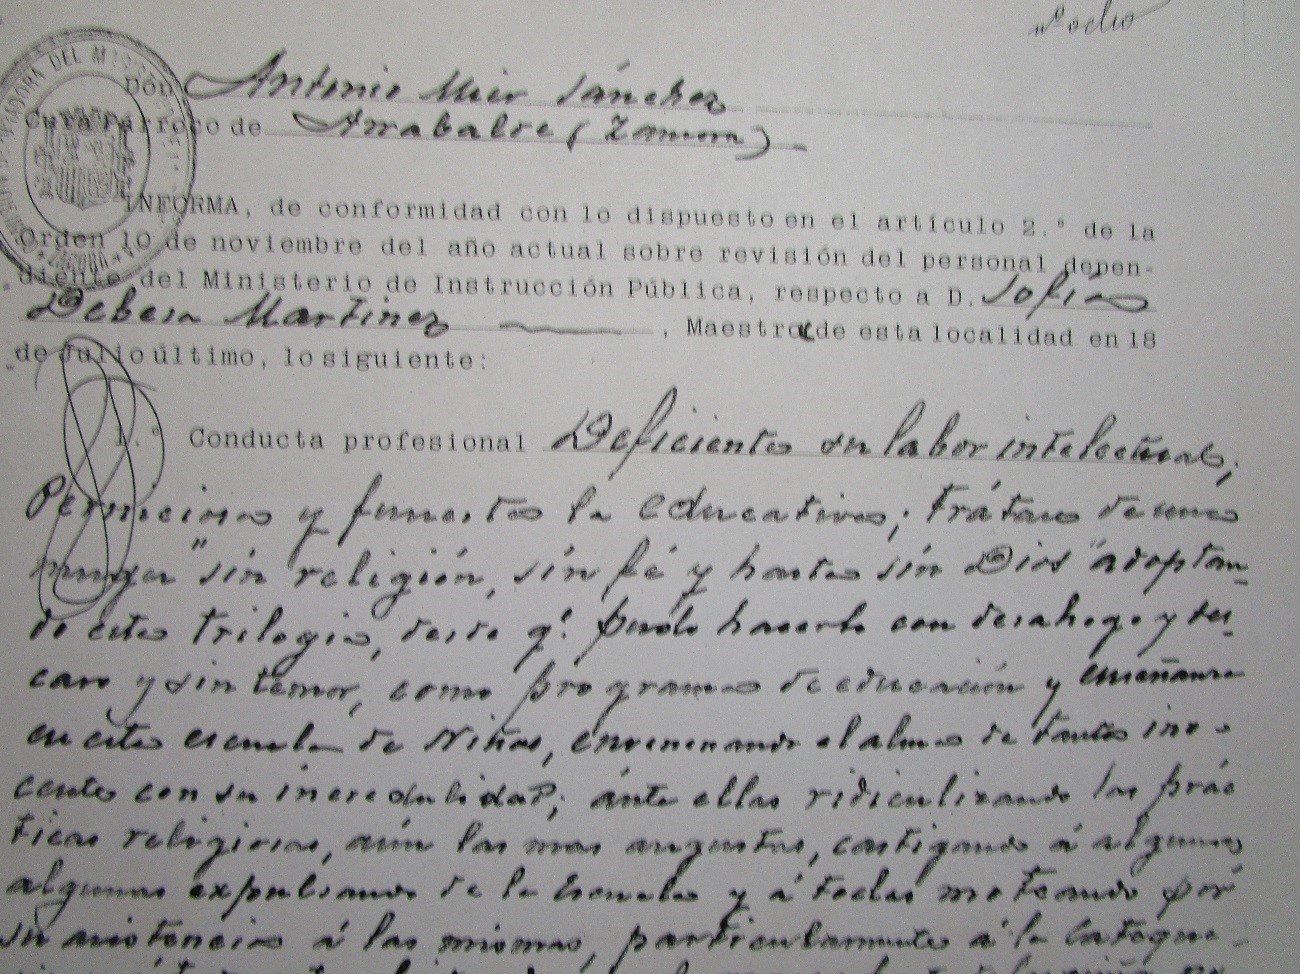 nº ocho
Don Antonio Mier Sánchez
Cura Párroco de Arrabalde (Zamora)
INFORMA, de conformidad con lo dispuesto en el artículo 2.º de la
Orden 10 de noviembre del año actual sobre revisión del personal depen-
diente del Ministerio de Instrucción Pública, respecto a D. Sofía
Debesa Martinez, Maestra de esta localidad en 18
de Julio último, lo siguiente:
1.º Conducta profesional Deficiente su labor intelectual;
Perniciosa y funesta la educativa; trátase de una
muger "sin religión, sin fé y hasta sin Dios" adoptan-
do esta trilogia, desde q! pudo hacerlo con desahogo y des-
caro y sin temor, como programa de educación y enseñanza
en esta escuela de Niñas, envenenando el alma de tanta ino-
cente con su incredulidad; ánte ellas ridiculizando las prác
ticas religiosas, aún las mas augustas, castigando á algunas
algunas expulsando de la Escuela y á todas moteando por
su asistencia á las mismas, particularmente á la Cateque-